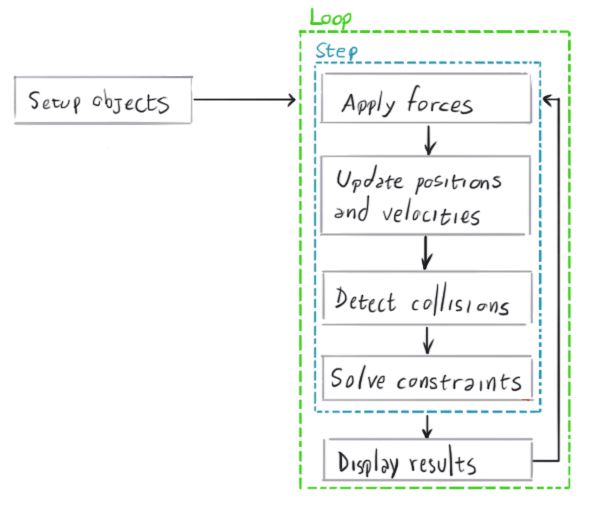 Loop
Step
Setup objects
Apply forces
Update positions
and velocities
Detect collisions
Solve constraints
Display results